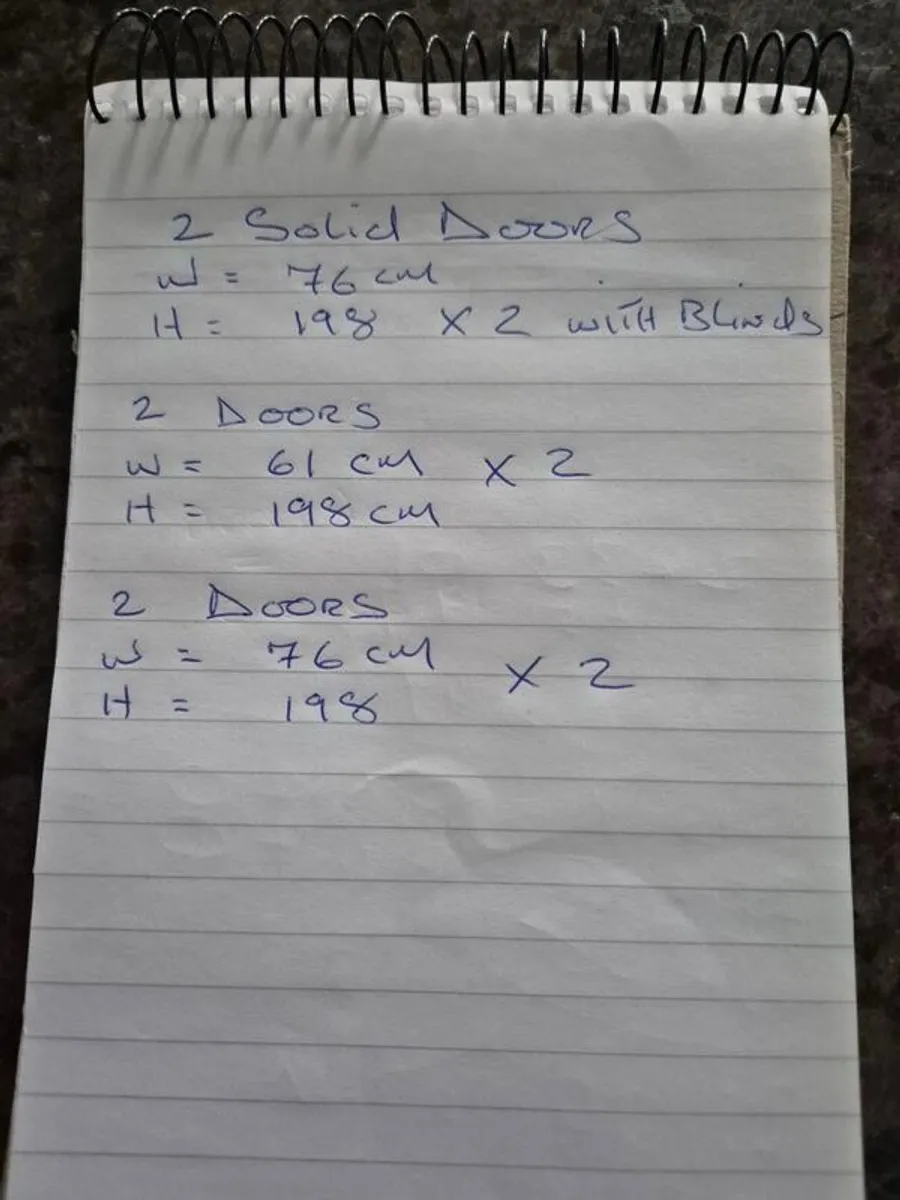 2 Solid Doors
W = 76 cm
H = 198 x 2 with Blinds
2 Doors
W = 61 cm x 2
H = 198 cm
2 Doors
W = 76 cm x 2
H = 198